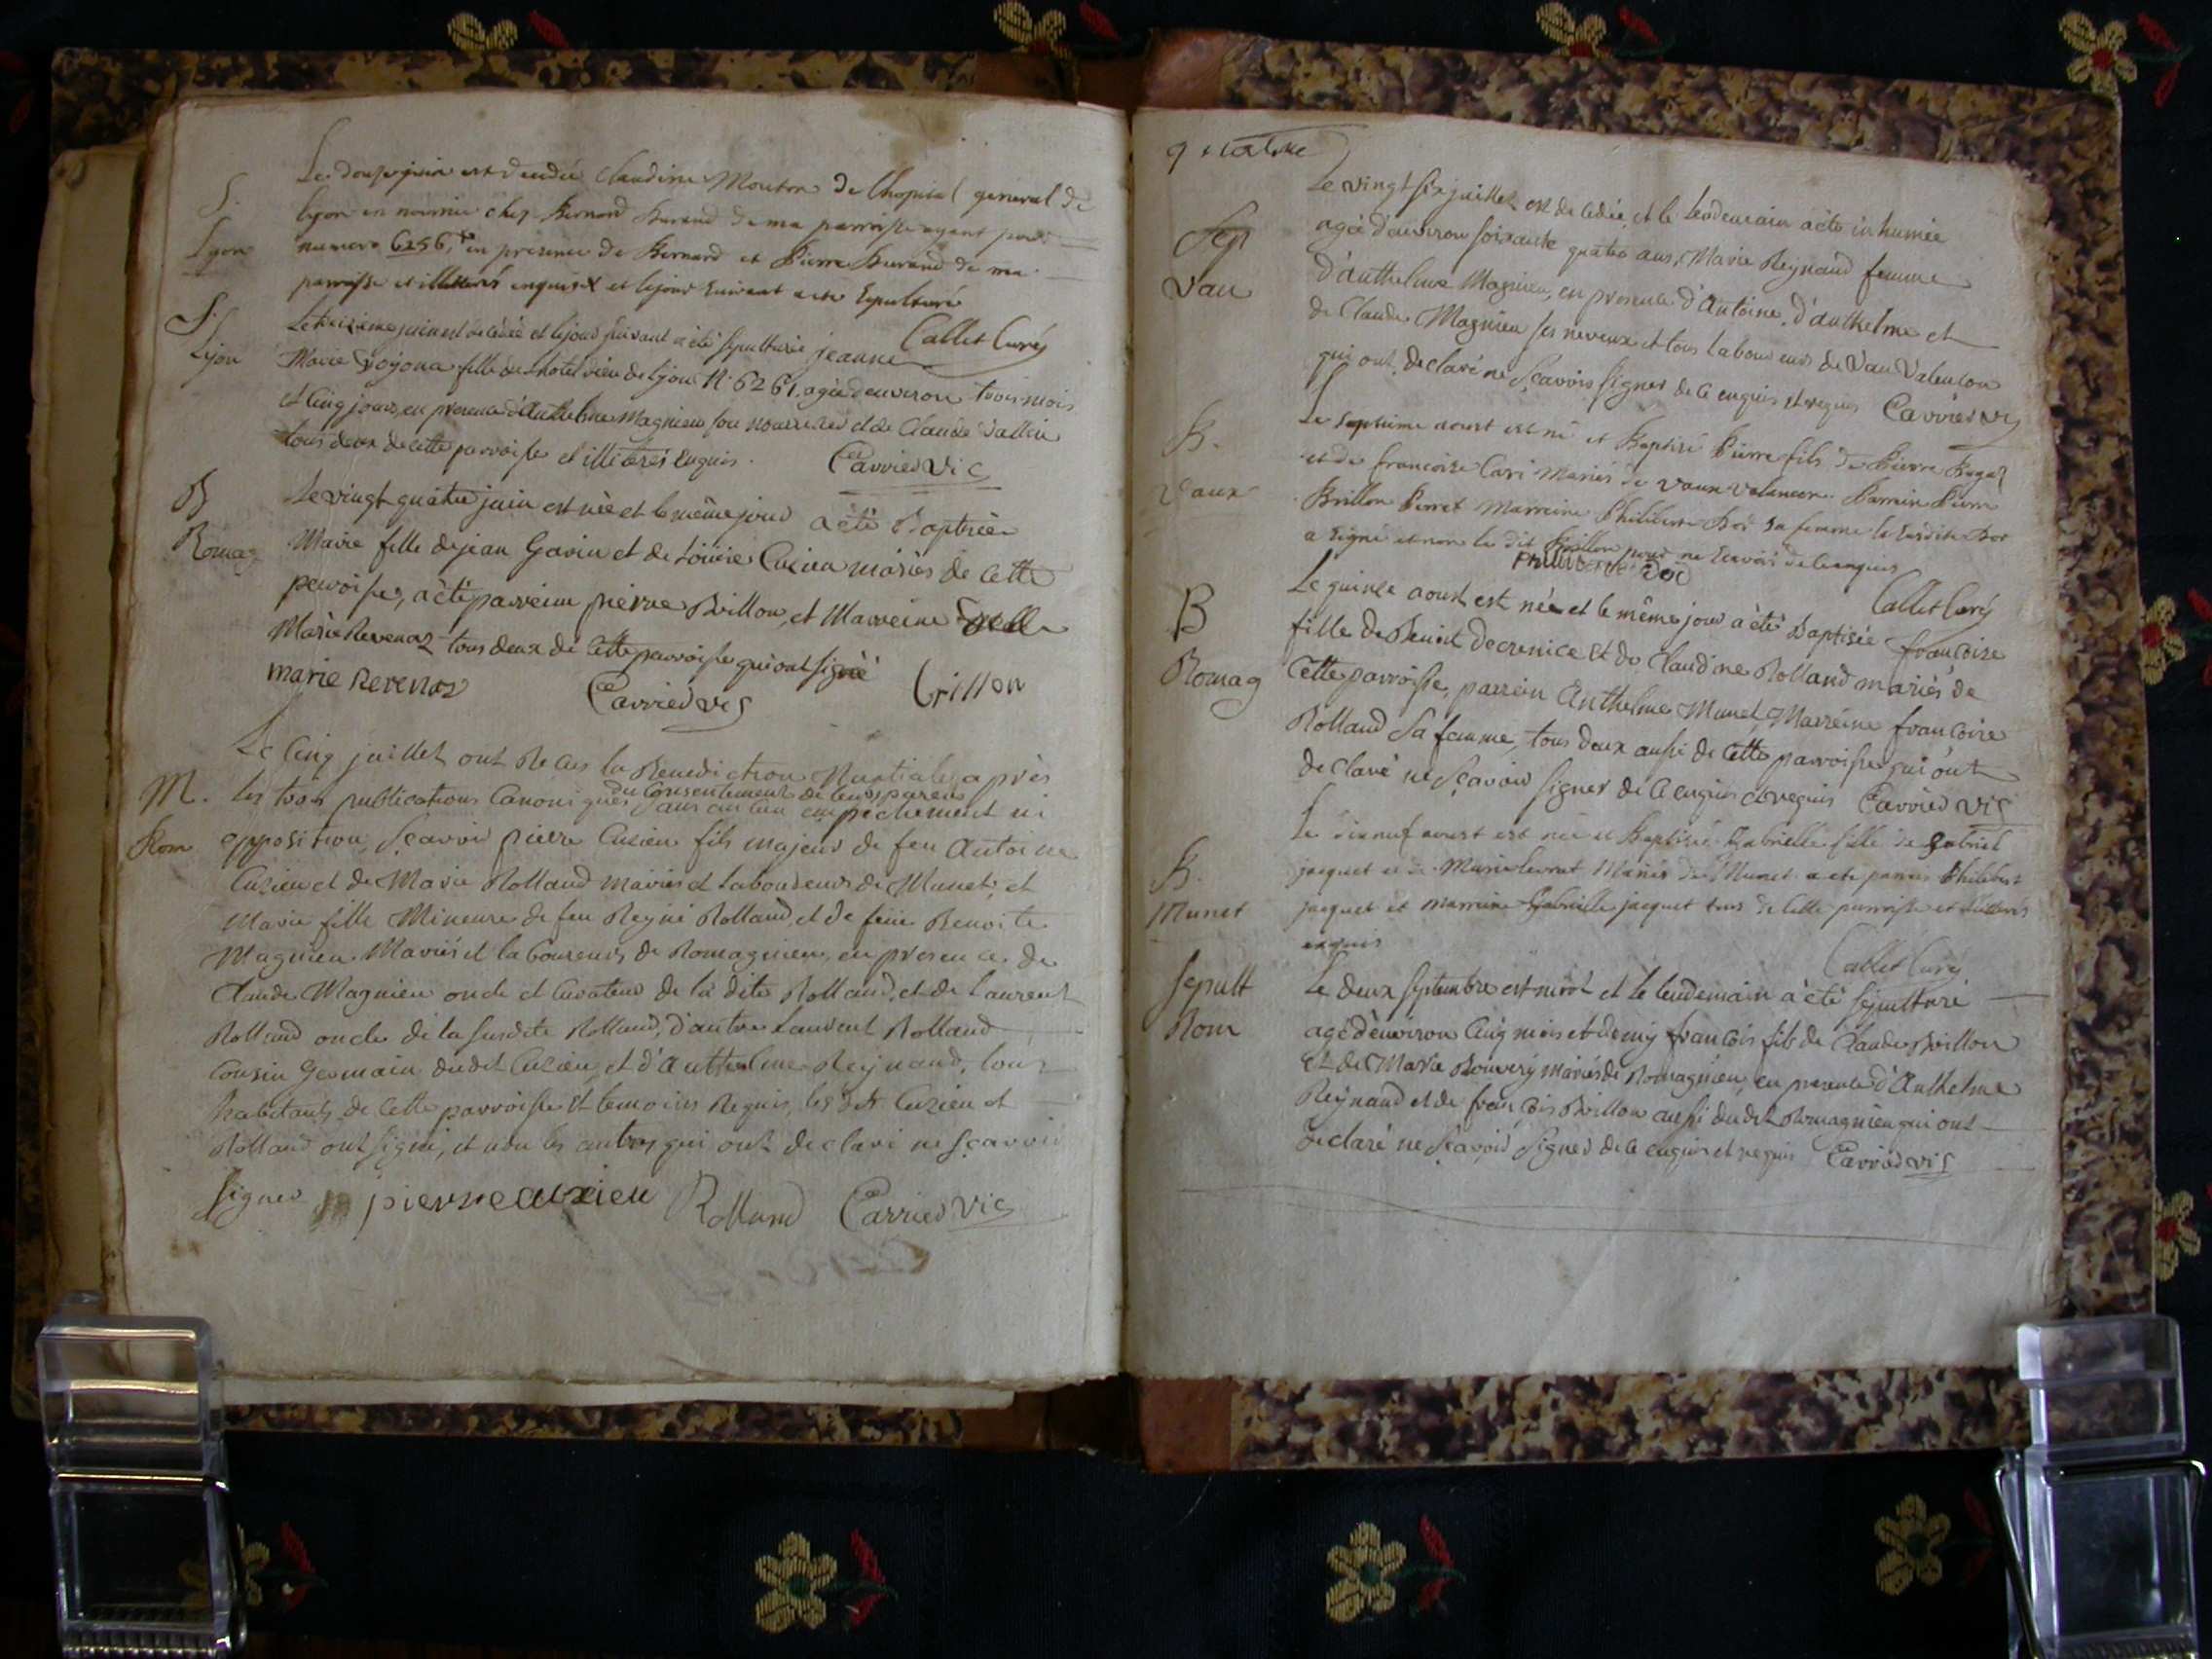 S.
Lyon
Le douze juin est decedée Claudine Mouton de l'hopital general de
lyon en nourrice chez Bernard Durand de ma parroisse ayant pour
numero 6256, en presence de Bernard et Pierre Durand de ma
parroisse et illitterés enquis et le jour suivant a été sepulturé
Callet Curé
S.
Lyon
Le treizieme juin est decedée et le jour suivant a été sepulturée jeanne
Marie fille de l'hotel dieu de lyon N. 6261, agée d'environ trois mois
et cinq jours, en presence d'Anthelme Magnieu son nourricier et de Claude
tous deux de cette parroisse et illiterés enquis. Carrier vic
B
Romag
Le vingt quatre juin est née et le même jour a été Baptisée
Marie fille de jean Gavin et de Loüise Cuzieu mariés de cette
parroisse, a été parrein pierre Brillon, et Marreine
Marie Revenaz tous deux de cette parroisse qui ont signé
marie Revenaz Carrier vic brillon
M.
Rom
Le cinq juillet ont Recus la Benediction Nuptiale après
du consentement de leurs parens
les trois publications Canoniques sans aucun empechement ni
opposition, sçavoir pierre Cuzieu fils majeur de feu Antoine
Cuzieu et de Marie Rolland mariés et laboureurs de Munet, et
Marie fille Mineure de feu Reyné Rolland, et de feüe Benoite
Magnieu Mariés et laboureurs de Romagnieu, en presence de
Claude Magnieu oncle et Curateur de la dite Rolland, et de Laurent
Rolland oncle de la susdite Rolland, d'autre Laurent Rolland
Cousin Germain dudit Cuzieu, et d'Anthelme Reynaud, tous
habitants de cette parroisse et temoins Requis, les dts Cuzieu et
Rolland ont signé, et non les autres qui ont declaré ne sçavoir
signer pierre cuzieu Rolland Carrier vic
quatre
Sep
Vau
Le vingt six juillet est decedée, et le lendemain a été inhumée
agée d'environ soixante quatre ans, Marie Reynaud femme
d'Anthelme Magnieu, en presence d'Antoine, d'anthelme et
de Claude Magnieu ses neveux et tous laboureurs de Vau Valencon
qui ont declaré ne sçavoir signer de ce enquis et requis Carrier vic
B.
Vaux
Le septieme aoust est né et Baptisé Pierre fils de Pierre
et de francoise Cari Mariés de Vaux Valancon. Parrain Pierre
Brillon Perret Marreine Philiberte Doz sa femme la susdite Doz
a signé et non le dit Brillon pour ne scavoir de ce enquis
Philiberte Doz
Callet Curé
B
Romag
Le quinze aoust est née et le même jour a été Baptisée francoise
fille de Benoit decrenice et de Claudine Rolland mariés de
Cette parroisse, parrein Anthelme Munet, Marreine francoise
Rolland sa femme, tous deux aussi de cette parroisse qui ont
declaré ne sçavoir signer de ce enquis et requis Carrier vic
B.
Munet
Le dix neuf aoust est née et Baptisée Gabrielle fille de gabriel
jacquet et de Marie Mariés de Munet a ete parrein Philibert
jacquet et marreine Gabrielle jacquet tous de cette parroisse et illiterés
enquis
Callet Curé
Sepult
Rom
Le deux septembre est mort et le lendemain a été sepulturé
agé d'environ cinq mois et demy francois fils de Claude Brillon
et de Marie Bouvery mariés de Romagnieu, en presence d'Anthelme
Reynaud et de francois Brillon aussi dudit Romagnieu qui ont
declaré ne sçavoir signer de ce enquis et requis Carrier vic